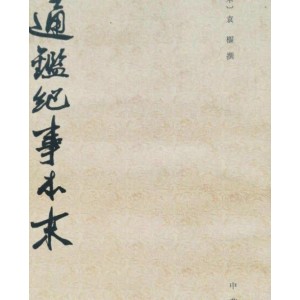 通鑑紀事本末
宋）袁樞撰
中